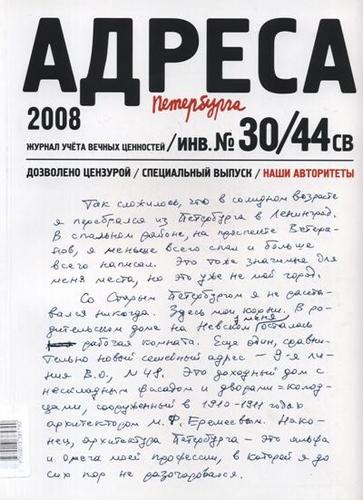 АДРЕСА
Петербурга
2008
ЖУРНАЛ УЧЁТА ВЕЧНЫХ ЦЕННОСТЕЙ/ИНВ.№30/44СВ
ДОЗВОЛЕНО ЦЕНЗУРОЙ / СПЕЦИАЛЬНЫЙ ВЫПУСК / НАШИ АВТОРИТЕТЫ
Так сложилось, что в солидном возрасте
я перебрался из Петербурга в Ленинград.
В спальном районе, на проспекте Ветера-
нов, я меньше всего спал и больше
всего написал. Это тоже значимые для
меня места, но это уже не мой город.
Со Старым Петербургом я не расста-
вался никогда. Здесь мои корни. В ро-
дительском доме на Невском у меня осталась
рабочая комната. Еще один, сравни-
тельно новый семейный адрес – 9-я ли-
ния В.О., № 48. Это доходный дом с
нескладным фасадом и дворами-колод-
цами, сооруженный в 1910-1911 годах
архитектором М.Ф. Еремеевым. Нако-
нец, архитектура Петербурга – это альфа
и омега моей профессии, в которой я до
сих пор не разочаровался.